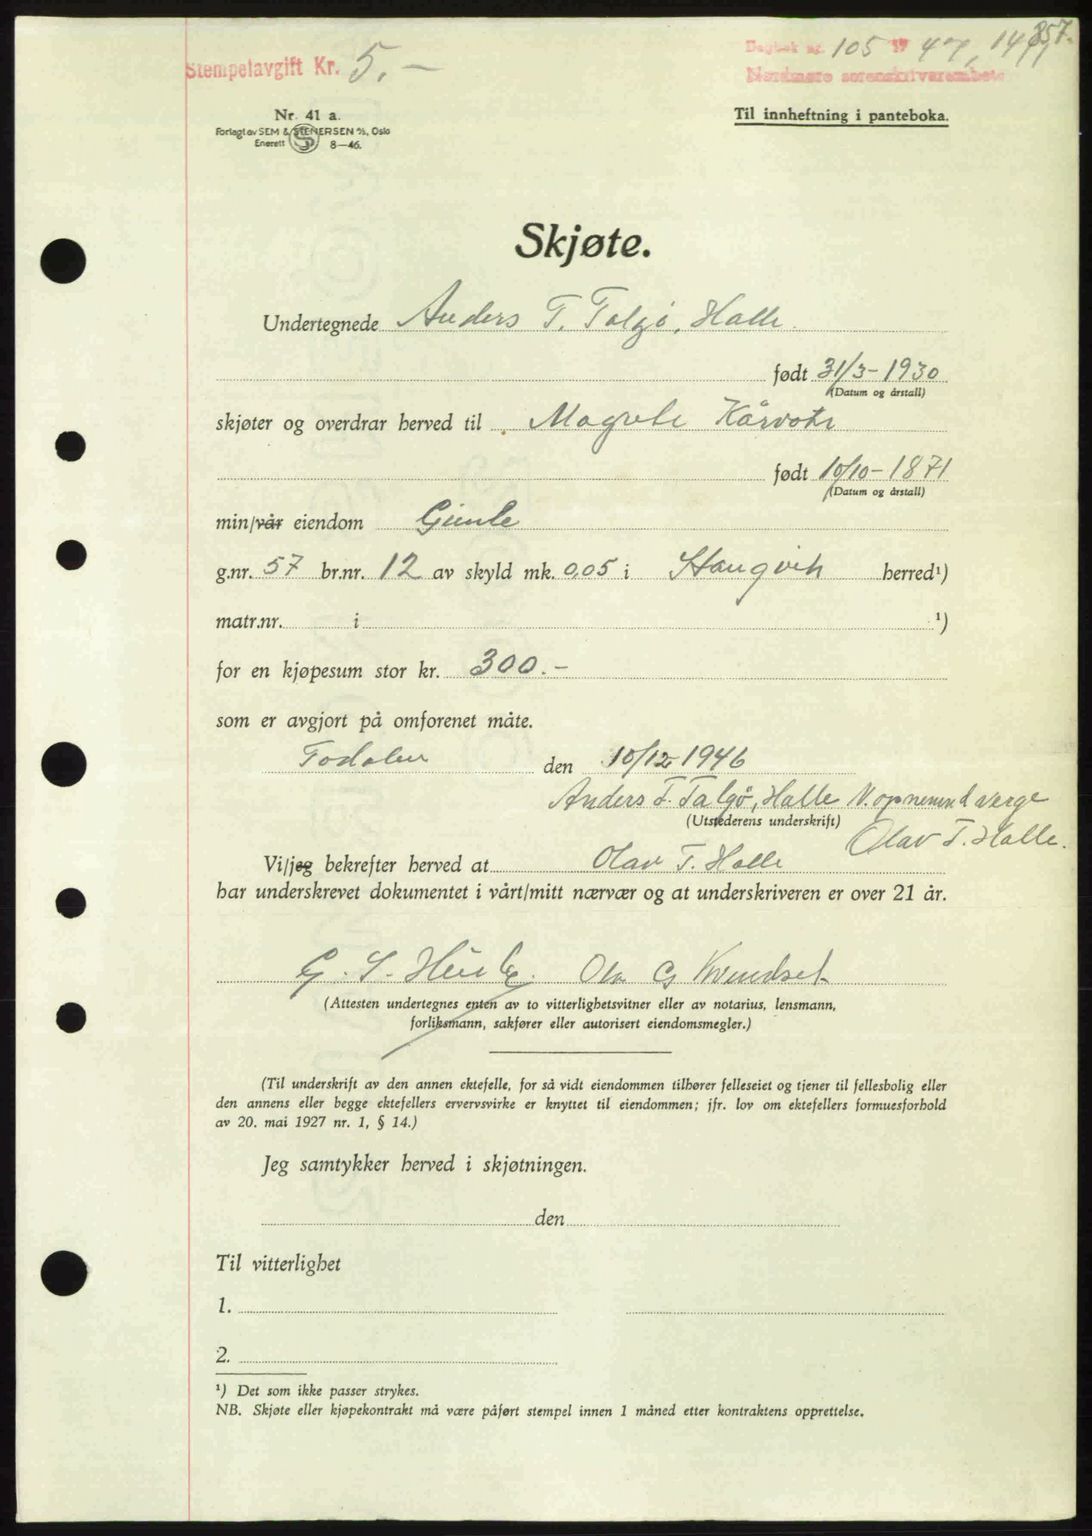 857.
Dagbok nr. 105 19 47, 14/1
Nordmøre sorenskriverembete
Stempelavgift Kr. 5.-
Nr. 41 a.
Forlagt av SEM & STENERSEN A/S, Oslo
Enerett 8-46.
Til innheftning i panteboka.
Skjøte.
Undertegnede Anders T. Talgø, Halle.
født 31/3-1930
(Datum og årstall)
skjøter og overdrar herved til Magrete Kårvatn
født 10/10-1871
(Datum og årstall)
min/vår eiendom Gimle
g.nr. 57 br.nr. 12 av skyld mk. 0,05 i Stangvik herred¹)
matr.nr. i ¹)
for en kjøpesum stor kr. 300.-
som er avgjort på omforenet måte.
Todalen den 10/12-1946
Anders T. Talgø, Halle V. opnemnd verge
(Utstederens underskrift) Olav T. Halle.
Vi/jeg bekrefter herved at Olav T. Halle
har underskrevet dokumentet i vårt/mitt nærvær og at underskriveren er over 21 år.
G. S. Husby. Ola G Kvendset
(Attesten undertegnes enten av to vitterlighetsvitner eller av notarius, lensmann,
forliksmann, sakfører eller autorisert eiendomsmegler.)
(Til underskrift av den annen ektefelle, for så vidt eiendommen tilhører felleseiet og tjener til fellesbolig eller
den annens eller begge ektefellers ervervsvirke er knyttet til eiendommen; jfr. lov om ektefellers formuesforhold
av 20. mai 1927 nr. 1, § 14.)
Jeg samtykker herved i skjøtningen.
den
Til vitterlighet
1.
2.
¹) Det som ikke passer strykes.
NB. Skjøte eller kjøpekontrakt må være påført stempel innen 1 måned etter kontraktens opprettelse.